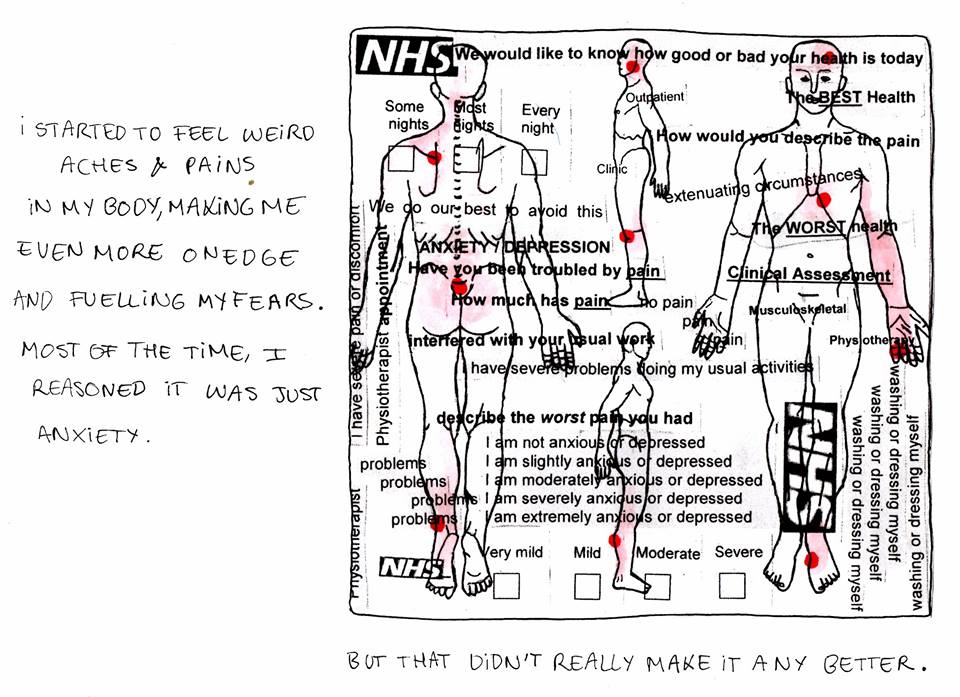 i STARTED TO FEEL WEIRD
ACHES & PAINS
iN MY BODY, MAKING ME
EVEN MORE ON EDGE
AND FUELLING MY FEARS.
MOST OF THE TIME, I
REASONED IT WAS JUST
ANXiETY.
NHS We would like to know how good or bad your health is today
Some nights
Most nights
Every night
Outpatient
The BEST Health
How would you describe the pain
Clinic
extenuating circumstances
We do our best to avoid this
The WORST health
ANXIETY / DEPRESSION
Have you been troubled by pain
Clinical Assessment
How much has pain
no pain
Musculoskeletal
pain
pain
Physiotherapy
interfered with your usual work
I have severe problems doing my usual activities
describe the worst pain you had
I am not anxious or depressed
I am slightly anxious or depressed
I am moderately anxious or depressed
I am severely anxious or depressed
I am extremely anxious or depressed
problems
problems
problems
problems
Very mild
Mild
Moderate
Severe
NHS
NHS
I have severe pain or discomfort
Physiotherapist appointment
Physiotherapist
washing or dressing myself
washing or dressing myself
washing or dressing myself
washing or dressing myself
BUT THAT DiDN'T REALLY MAKE iT ANY BETTER.